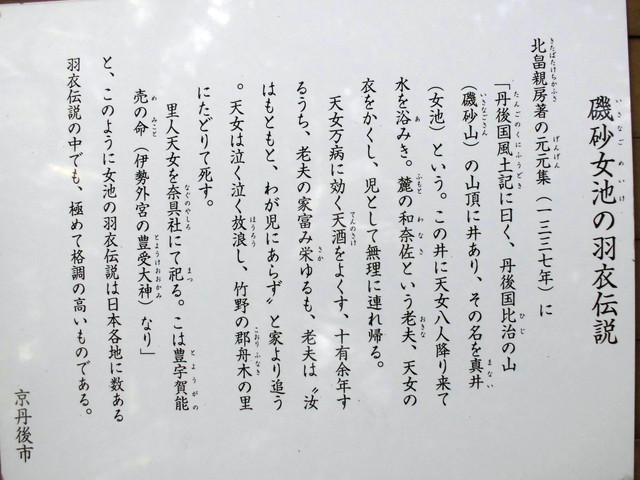 磯砂女池の羽衣伝説
北畠親房著の元元集（一三三七年）に
「丹後国風土記に曰く、丹後国比治の山
（磯砂山）の山頂に井あり、その名を真井
（女池）という。この井に天女八人降り来て
水を浴みき。麓の和奈佐という老夫、天女の
衣をかくし、児として無理に連れ帰る。
天女万病に効く天酒をよくす、十有余年す
るうち、老夫の家富み栄ゆるも、老夫は〝汝
はもともと、わが児にあらず〟と家より追う
。天女は泣く泣く放浪し、竹野の郡舟木の里
にたどりて死す。
里人天女を奈具社にて祀る。こは豊宇賀能
売の命（伊勢外宮の豊受大神）なり」
と、このように女池の羽衣伝説は日本各地に数ある
羽衣伝説の中でも、極めて格調の高いものである。
京丹後市